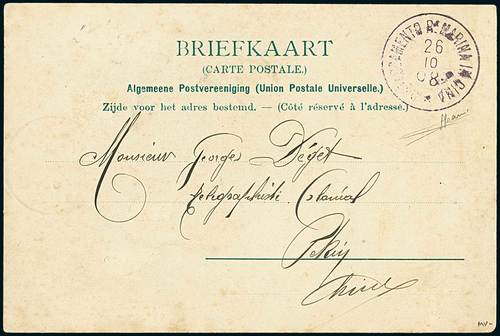 BRIEFKAART
(CARTE POSTALE.)
Algemeene Postvereeniging (Union Postale Universelle.)
Zijde voor het adres bestemd. — (Côté réservé à l'adresse.)
R. MARINA IN CINA
26
10
08
Monsieur Georges Déget
Colonial
Pékin
Chine